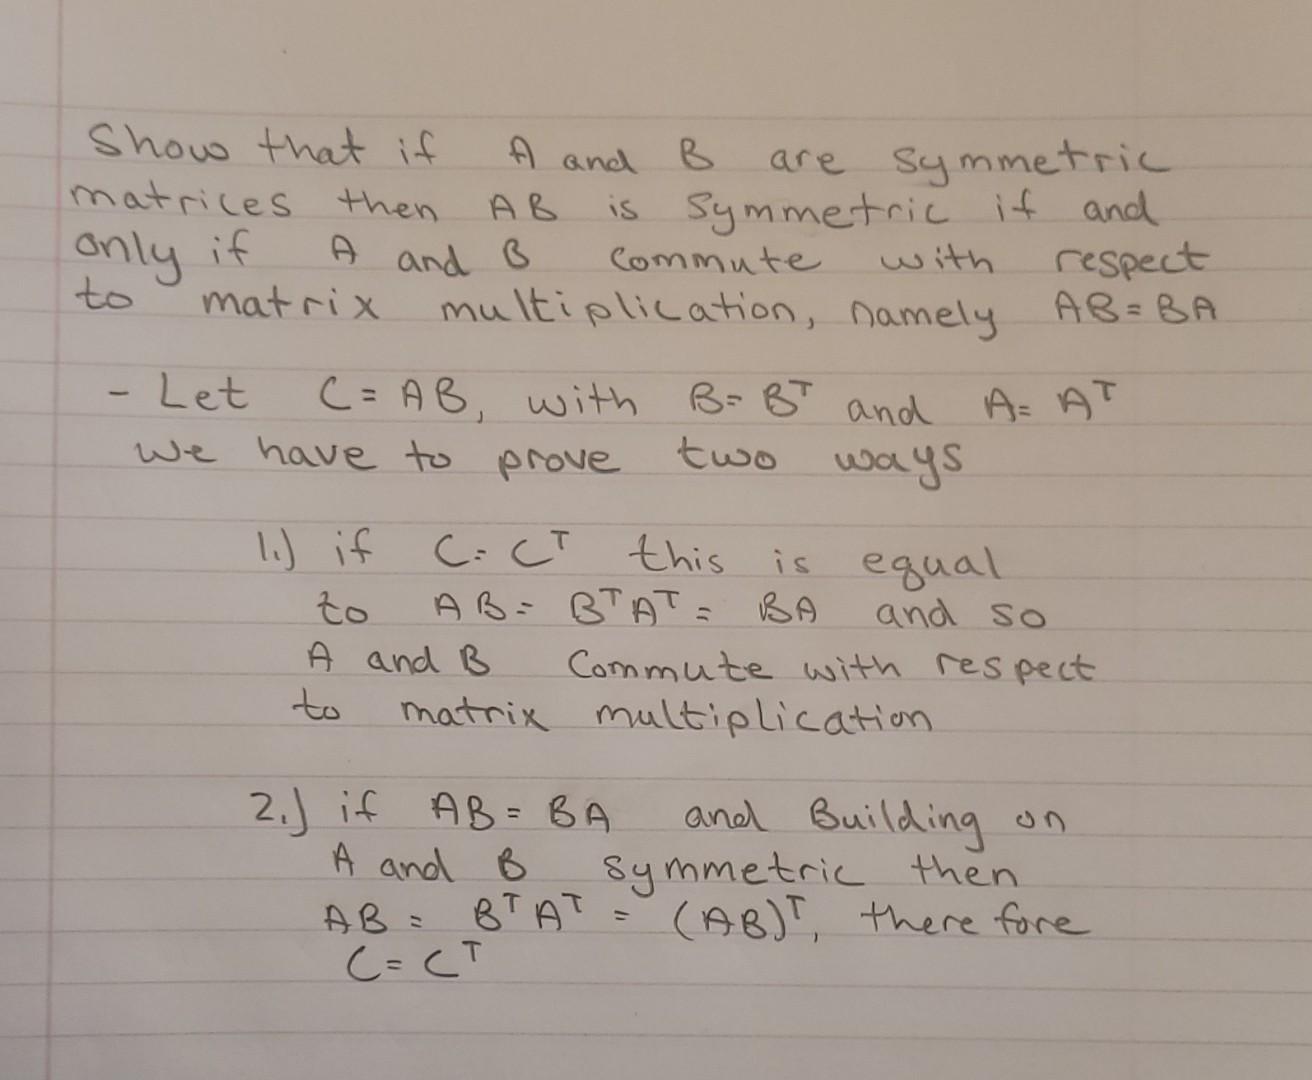 Show that if A and B are symmetric
matrices then AB is symmetric if and
only if A and B commute with respect
to matrix multiplication, namely AB = BA
- Let C = AB, with B = Bᵀ and A = Aᵀ
we have to prove two ways
1.) if C = Cᵀ this is equal
to AB = BᵀAᵀ = BA and so
A and B commute with respect
to matrix multiplication
2.) if AB = BA and Building on
A and B symmetric then
AB = BᵀAᵀ = (AB)ᵀ, there fore
C = Cᵀ